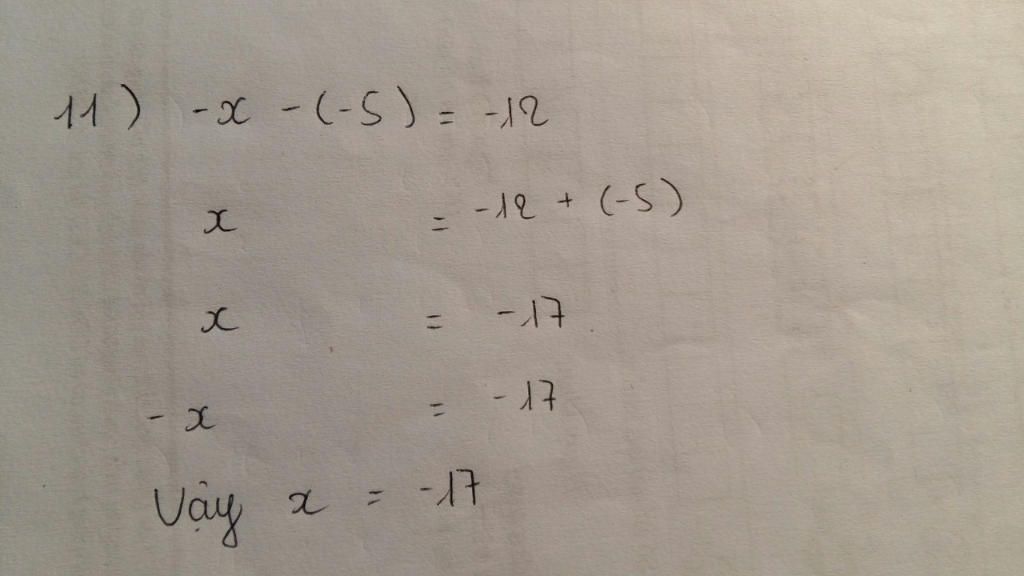 11) -x - (-5) = -12
x = -12 + (-5)
x = -17
-x = -17
Vậy x = -17